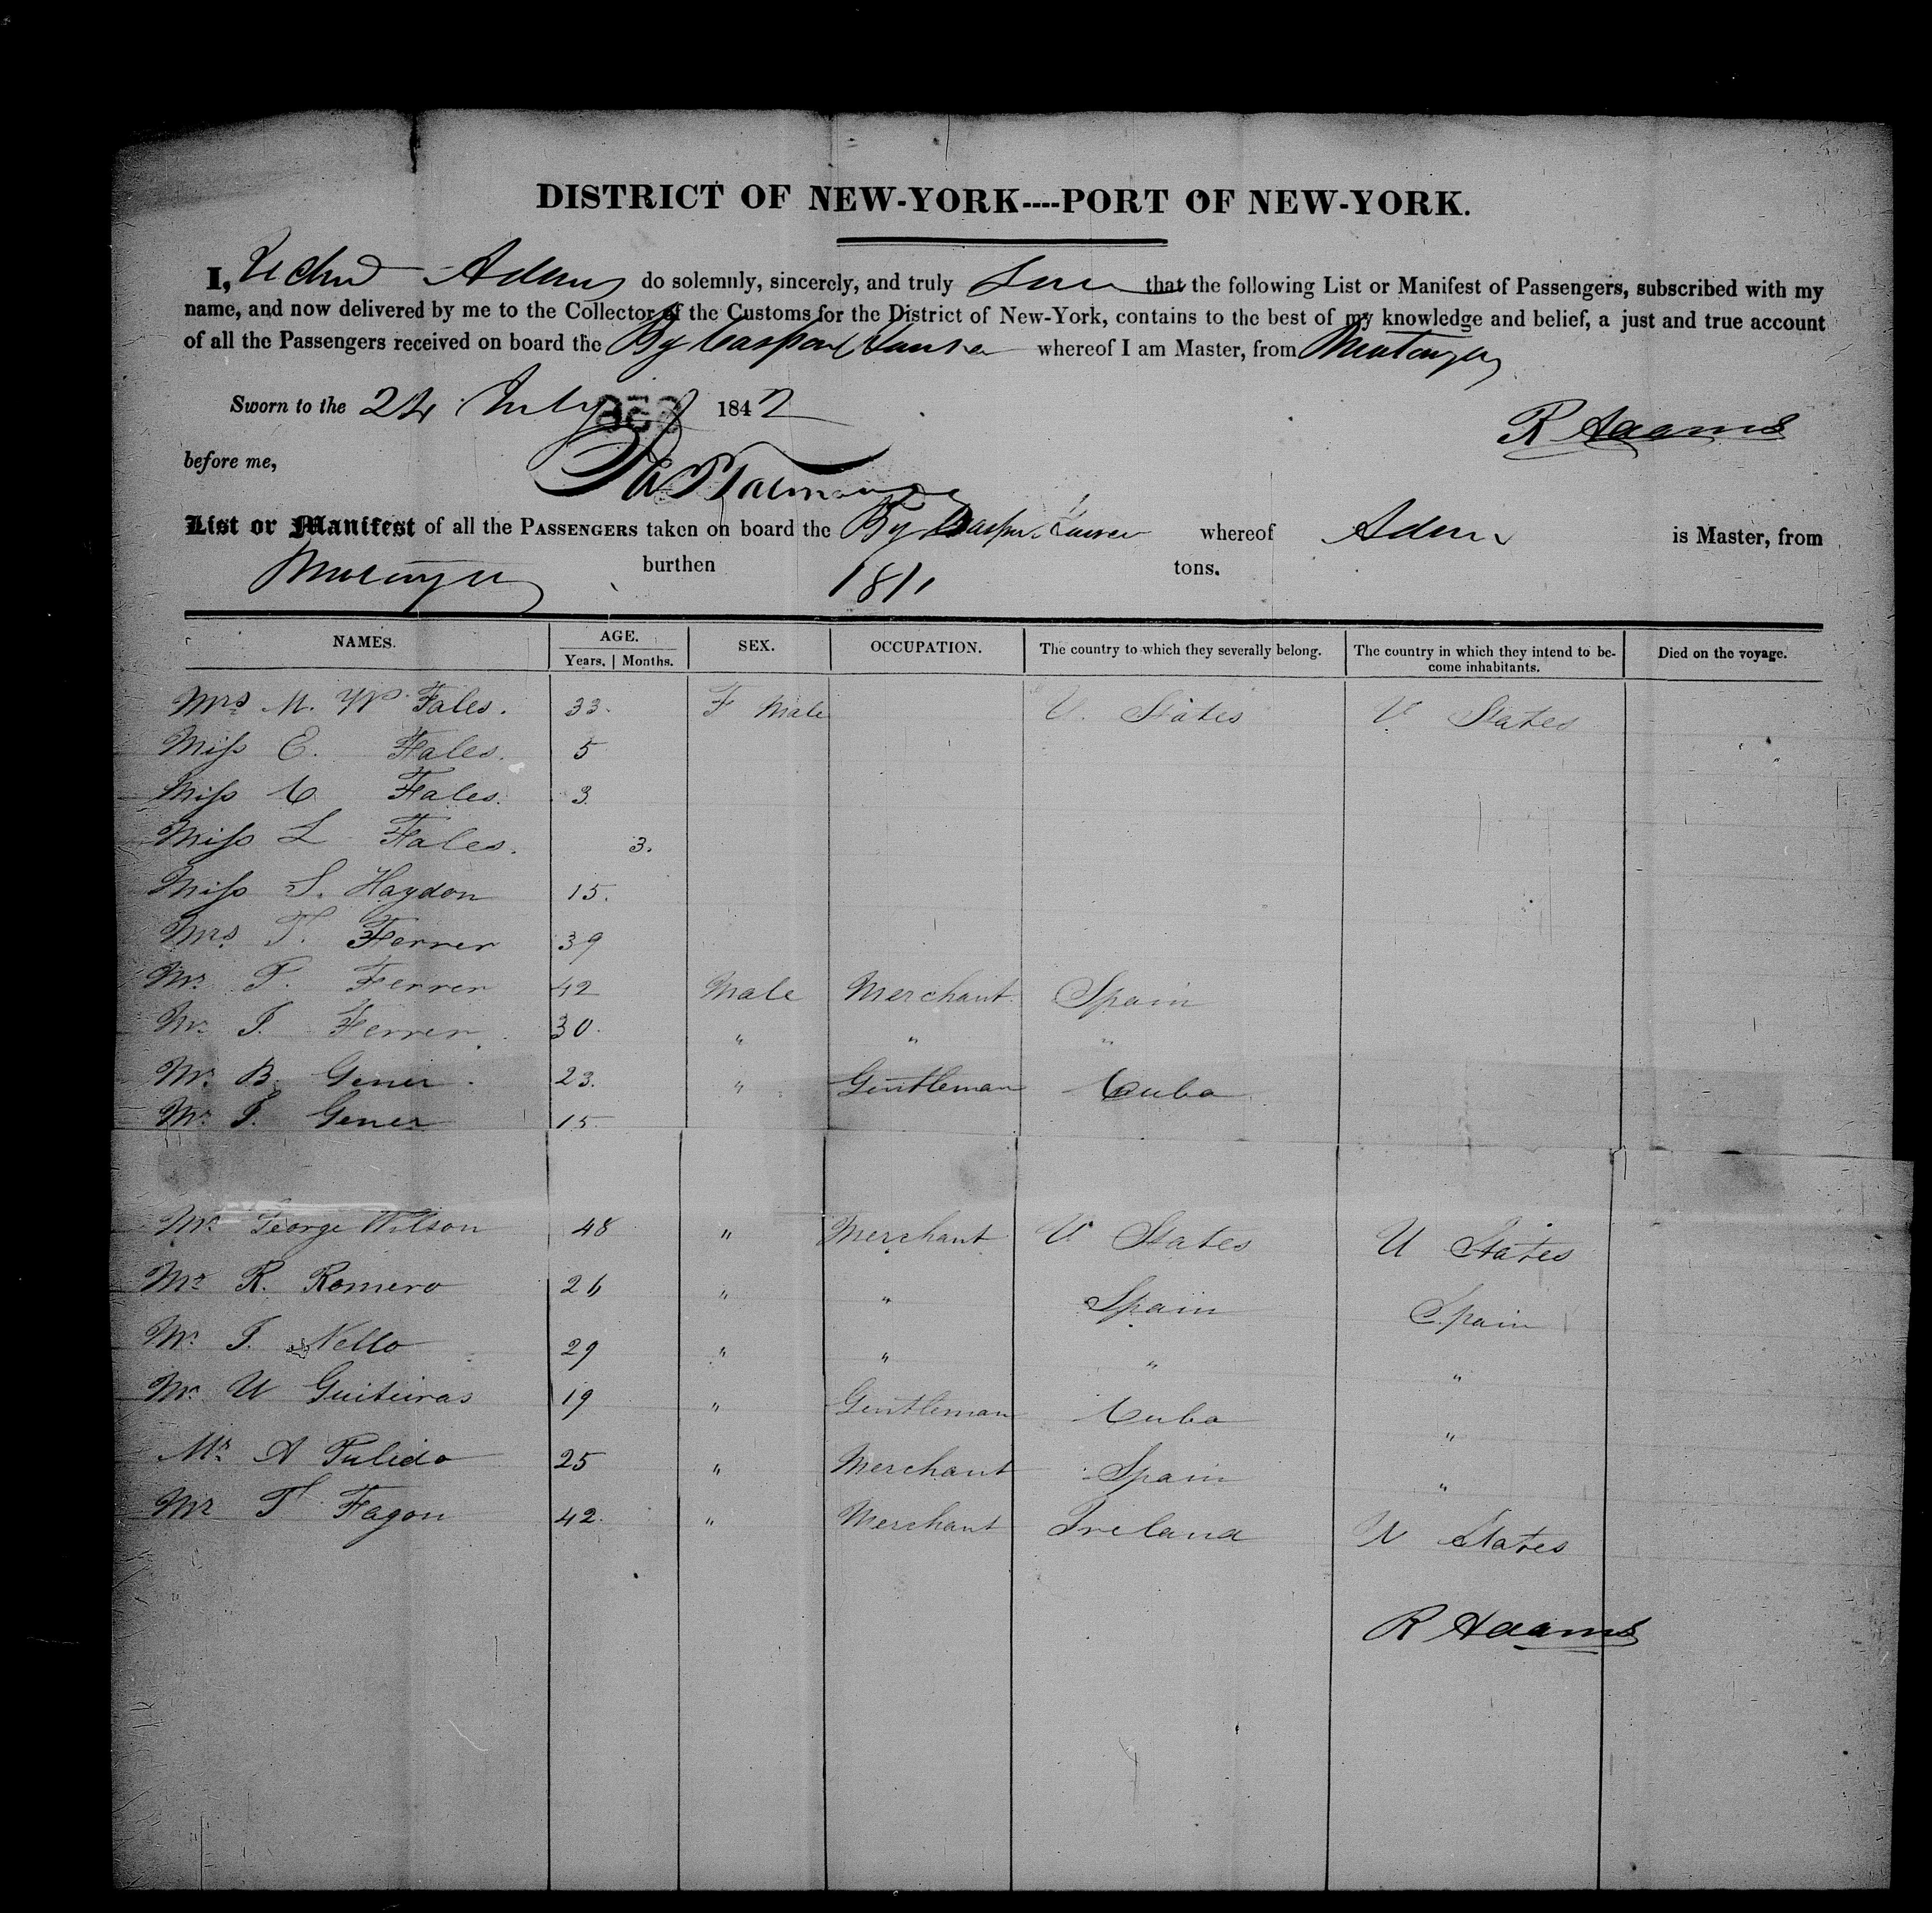 DISTRICT OF NEW-YORK----PORT OF NEW-YORK.
I, Richd Adams do solemnly, sincerely, and truly that the following List or Manifest of Passengers, subscribed with my
name, and now delivered by me to the Collector of the Customs for the District of New-York, contains to the best of my knowledge and belief, a just and true account
of all the Passengers received on board the Bg Caspar Hauser whereof I am Master, from Matanzas
Sworn to the 24 July 1842
R Adams
before me,
List or Manifest of all the PASSENGERS taken on board the Bg Caspar Hauser whereof Adams is Master, from
Matanzas burthen 181 tons.
NAMES. AGE. SEX. OCCUPATION. The country to which they severally belong. The country in which they intend to be- Died on the voyage.
Years. | Months. come inhabitants.
Mrs M. W Fales. 33. F Male U. States U States
Miss E. Fales. 5
Miss C Fales. 3
Miss L Fales. 3.
Miss S. Haydon 15.
Mrs T. Ferrer 39
Mr. T. Ferrer 42 Male Merchant Spain
Mr J. Ferrer. 30. " " "
Mr. B. Gener. 23. " Gentleman Cuba
Mr. J. Gener 15
Mr. George Wilson 48 " Merchant U States U States
Mr R. Romero 26 " " Spain Spain
Mr. J. Nello 29 " " " "
Mr. U Guiteiras 19 " Gentleman Cuba "
Mr. A Pulido 25 " Merchant Spain "
Mr T Fagon 42. " Merchant Ireland U States
R Adams